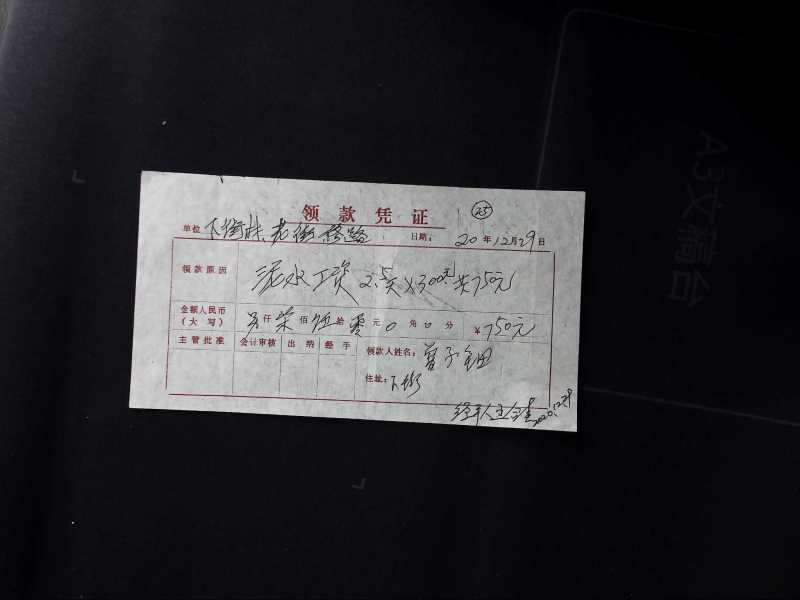 领款凭证
25
单位 下街村老街公路 日期: 20年12月29日
领款原因 泥水工资 2.5天×300元共750元
金额人民币(大写) 另仟柒佰伍拾零元0角0分 ¥750元
主管批准 会计审核 出纳 经手 领款人姓名: 曾子
住址: 下街
经手人 2020.12.29
A3文稿台